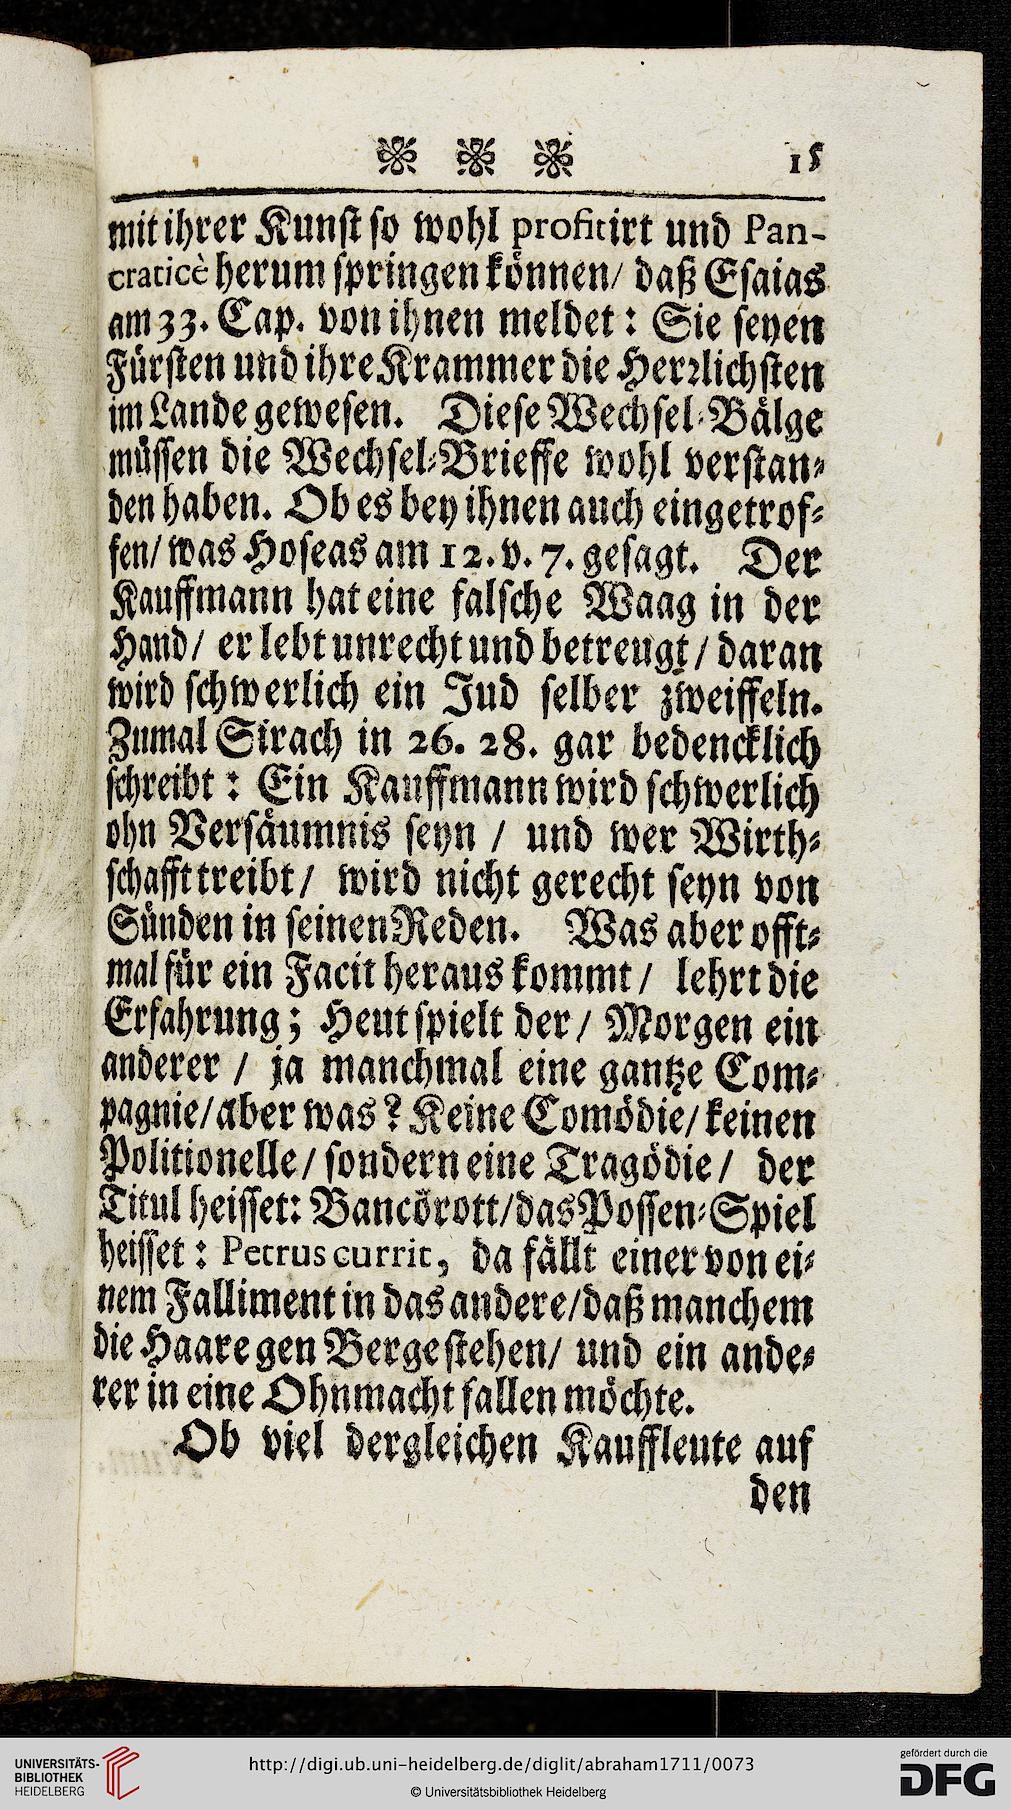 15
mit ihrer Kunst so wohl profitirt und Pan-
craticè herum springen können/ daß Esaias
am 33. Cap. von ihnen meldet: Sie seyen
Fürsten und ihre Krammer die Herrlichsten
im Lande gewesen. Diese Wechsel-Bälge
müssen die Wechsel-Brieffe wohl verstan-
den haben. Ob es bey ihnen auch eingetrof-
fen/ was Hoseas am 12. v. 7. gesagt. Der
Kauffmann hat eine falsche Waag in der
Hand/ er lebt unrecht und betreugt/ daran
wird schwerlich ein Jud selber zweiffeln.
Zumal Sirach in 26. 28. gar bedencklich
schreibt: Ein Kauffmann wird schwerlich
ohn Versäumnis seyn / und wer Wirth-
schafft treibt/ wird nicht gerecht seyn von
Sünden in seinen Reden. Was aber offt-
mal für ein Facit heraus kommt/ lehrt die
Erfahrung; Heut spielt der/ Morgen ein
anderer / ja manchmal eine gantze Com-
pagnie/ aber was? Keine Comödie/ keinen
Politionelle/ sondern eine Tragödie/ der
Titul heisset: Bancörott/ das Possen-Spiel
heisset: Petrus currit, da fällt einer von ei-
nem Falliment in das andere/ daß manchem
die Haare gen Berge stehen/ und ein ande-
rer in eine Ohnmacht fallen möchte.
Ob viel dergleichen Kauffleute auf
den
UNIVERSITÄTS-
BIBLIOTHEK
HEIDELBERG
http://digi.ub.uni-heidelberg.de/diglit/abraham1711/0073
© Universitätsbibliothek Heidelberg
gefördert durch die
DFG